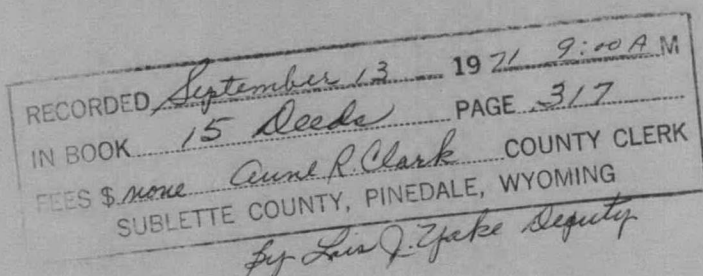 RECORDED September 13 1971 9:00 A M
IN BOOK 15 Deeds PAGE 317
FEES $ none Aune R. Clark COUNTY CLERK
SUBLETTE COUNTY, PINEDALE, WYOMING
By Lois J. Deputy